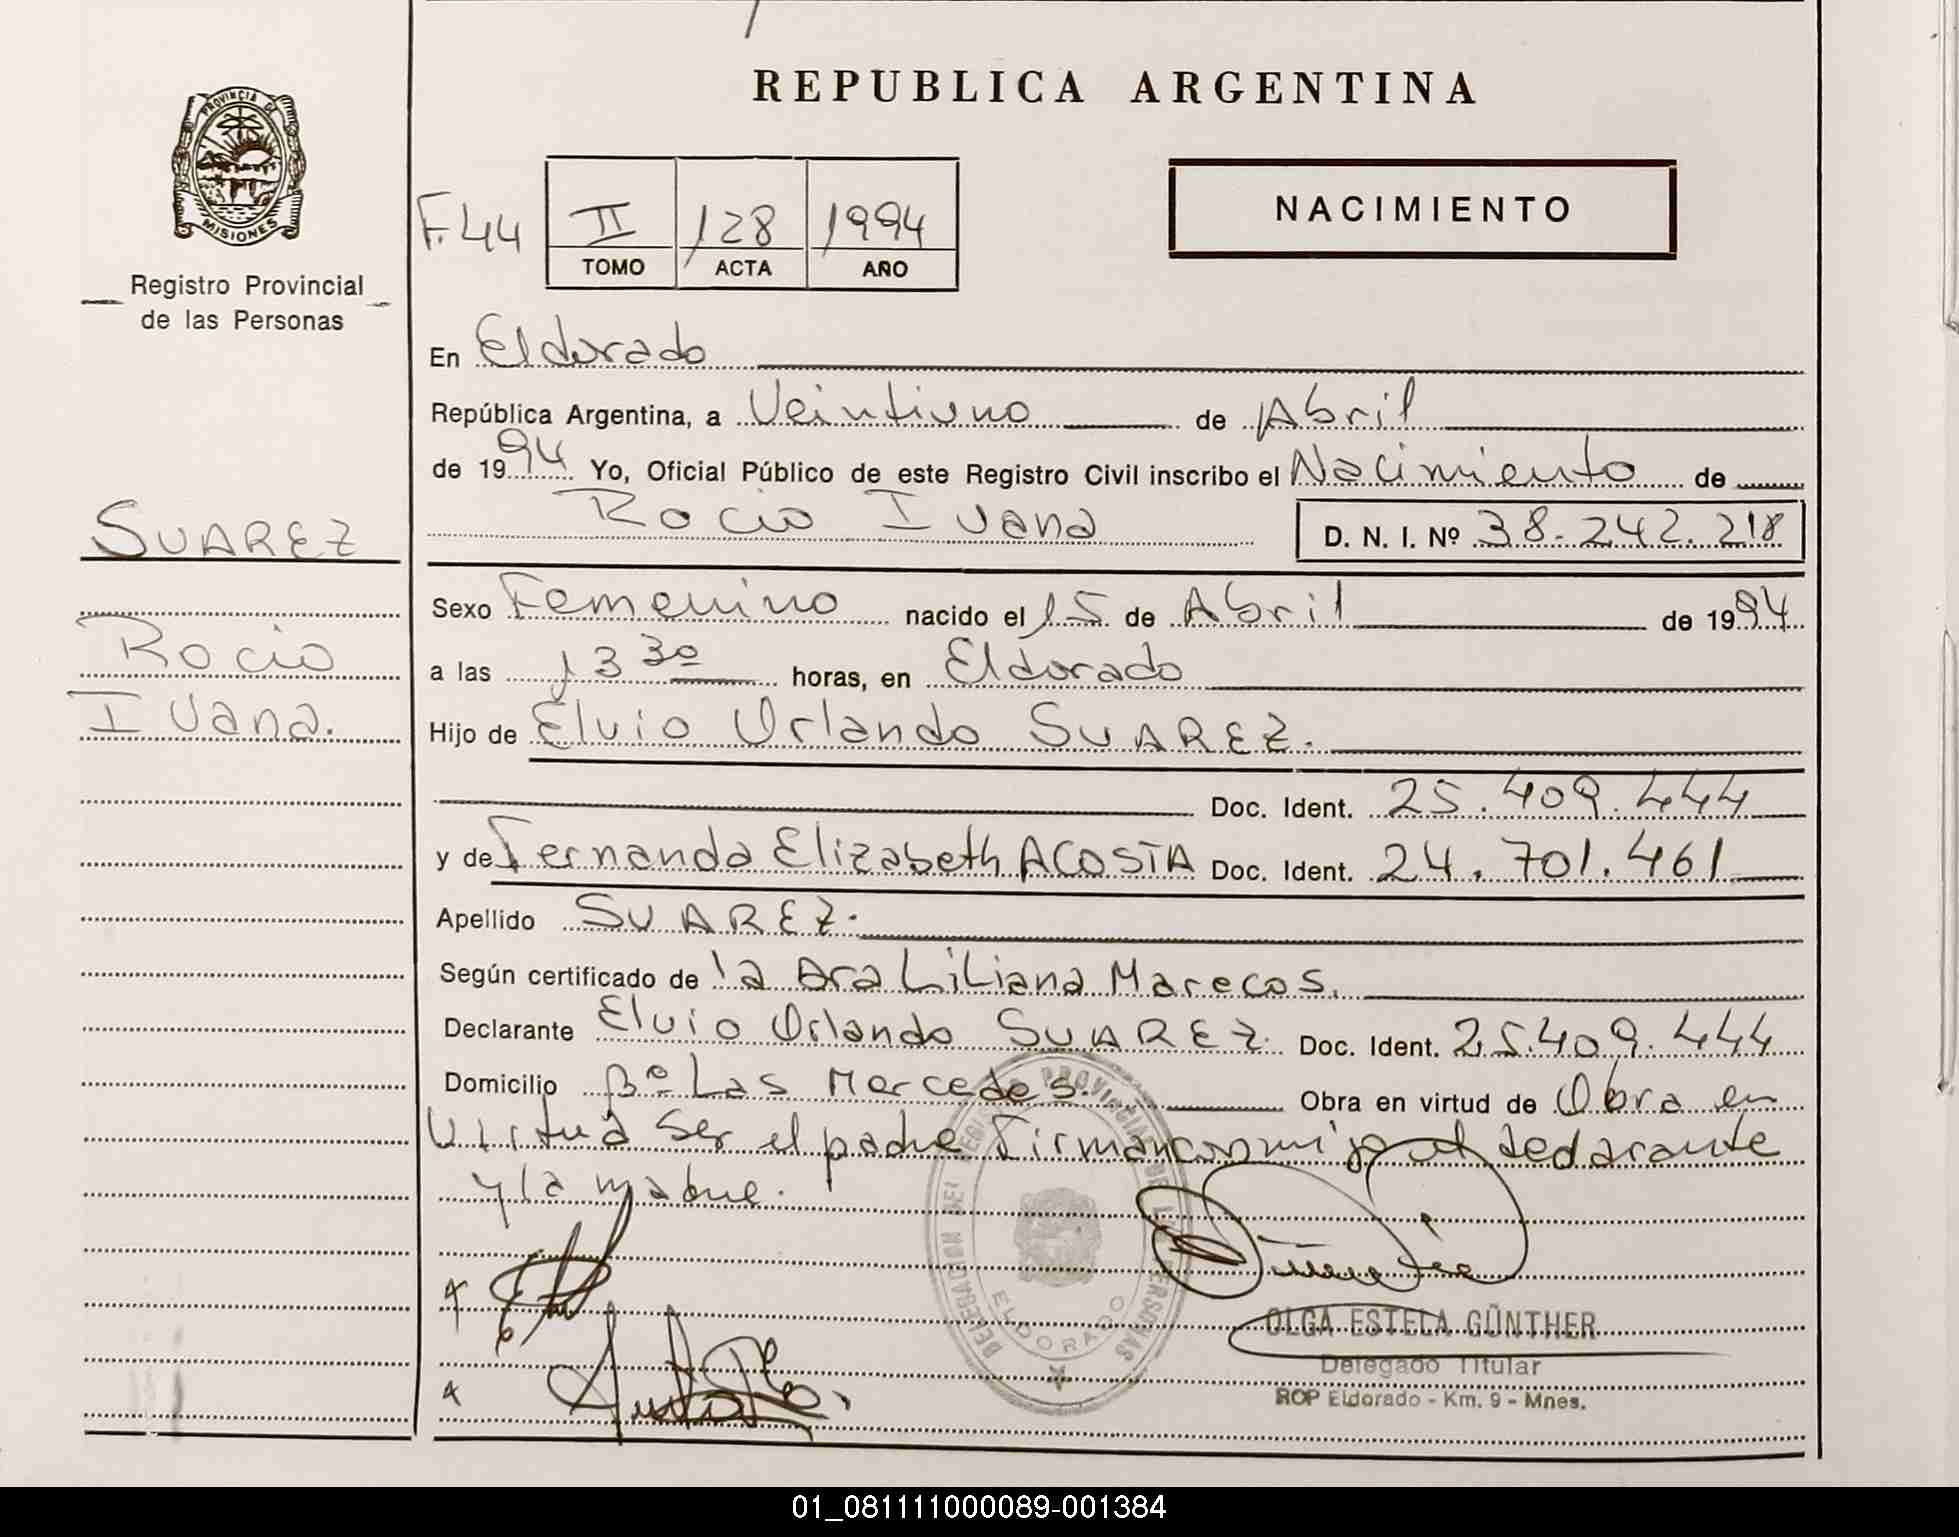 REPUBLICA ARGENTINA
PROVINCIA DE
MISIONES
Registro Provincial
de las Personas
F.44
II 128 1994
TOMO ACTA AÑO
NACIMIENTO
En Eldorado
República Argentina, a Veintiuno de Abril
de 1994 Yo, Oficial Público de este Registro Civil inscribo el Nacimiento de
Rocio Ivana D. N. I. Nº 38.242.218
SUAREZ
Rocio
Ivana.
Sexo Femenino nacido el 15 de Abril de 1994
a las 13 30 horas, en Eldorado
Hijo de Elvio Orlando SUAREZ.
Doc. Ident. 25.409.444
y de Fernanda Elizabeth ACOSTA Doc. Ident. 24.701.461
Apellido SUAREZ.
Según certificado de la Dra Liliana Marecos.
Declarante Elvio Orlando SUAREZ. Doc. Ident. 25.409.444
Domicilio Bº Las Mercedes. Obra en virtud de Obra en
Virtud Ser el padre Firman conmigo el declarante
y la madre.
DELEGACION DEL REGISTRO PROVINCIAL DE LAS PERSONAS
ELDORADO
OLGA ESTELA GÜNTHER
Delegado Titular
RCP Eldorado - Km. 9 - Mnes.
01_081111000089-001384